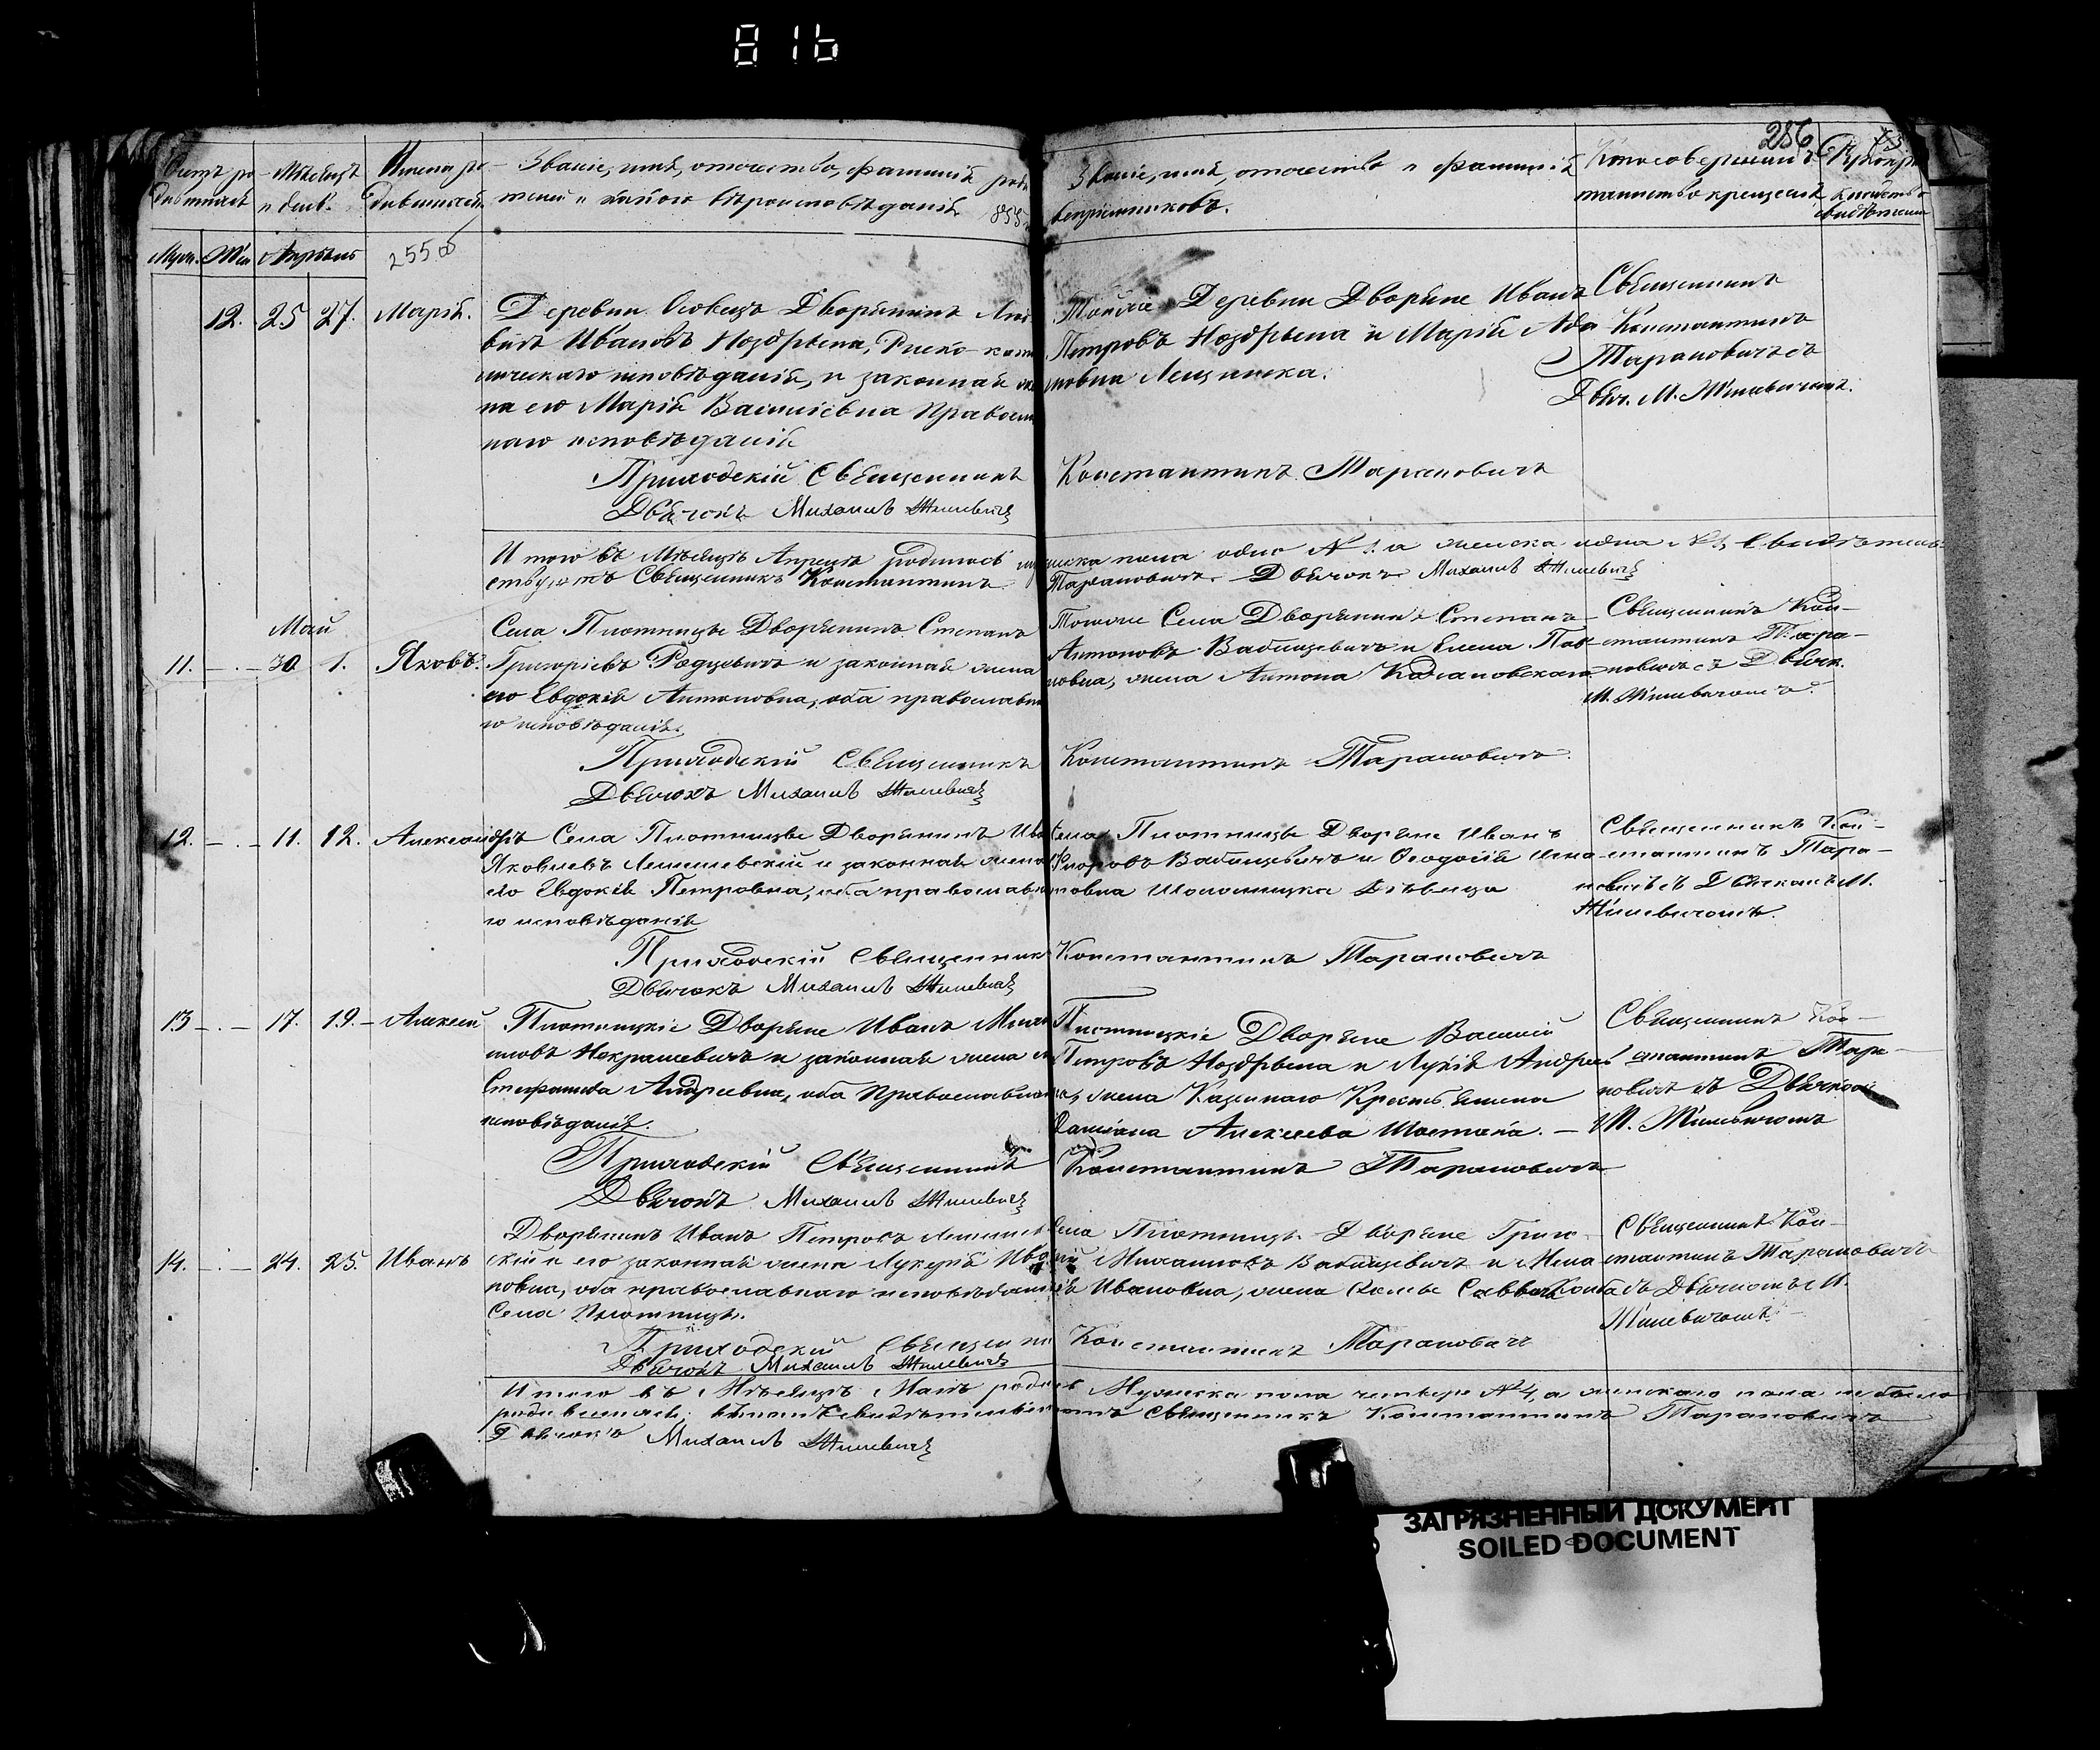 816
286
Счетъ ро- Мѣсяцъ Имена ро- Званіе, имя, отчество, фамилія роди
дившихся и день. дившихся телей и какого вѣроисповѣданія
Званіе, имя, отчество и фамилія
воспріемниковъ.
Кто совершалъ
таинство крещенія
Муж. Жен Апрѣль 2550
12. 25 27. Марія. Деревни Осовецъ Дворянинъ
Иванъ Ноздрынa, Римско-като
лическаго исповѣданія, и законная же
на его Марія Василіевна Православ
наго исповѣданія
Тойже Деревни Дворяне Иванъ
Петровъ Ноздрына и Марія Ада
мовна Лещинска.
Священникъ
Константинъ
Тарановичъ съ
Дьяч. М. Жилевичемъ.
Приходскій Священникъ Константинъ Тарановичъ
Дьячокъ Михаилъ Жилевичъ
Итого въ Мѣсяцѣ Апрелѣ родилось мужеска пола одно №1. а женска одна №1, Свидѣтель-
ствуютъ Священникъ Константинъ Тарановичъ. Дьячокъ Михаилъ Жилевичъ
Май
11. 30 1. Яковъ. Села Плотницы Дворянинъ Степанъ
Григоріевъ Родзевичъ и законная жена
его Евдокія Антоновна, оба православна
го исповѣданія.
Тогоже Села Дворянинъ Степанъ
Антоновъ Вабищевичъ и Елена Пав
ловна, жена Антона
Священникъ Кон-
стантинъ Тара-
новичъ съ Дьячк.
М. Жилевичемъ.
Приходскій Священникъ Константинъ Тарановичъ
Дьячокъ Михаилъ Жилевичъ
12. 11. 12. Александръ Села Плотницы Дворянинъ Иванъ
Яковлевъ Лемешевскій и законная жена
его Евдокія Петровна, оба православна
го исповѣданія
Села Плотницы Дворяне Иванъ
Вабищевичъ и Ѳеодосія Игна
товна Шоломицка Дѣвица
Священникъ Кон-
стантинъ Тара-
новичъ съ Дьячкомъ М.
Жилевичемъ.
Приходскій Священникъ Константинъ Тарановичъ
Дьячокъ Михаилъ Жилевичъ
13 17. 19. Алексей Плотницкіе Дворяне Иванъ Миха
иловъ Некрашевичъ и законная жена
Стефанида Андреевна, оба Православнаго
исповѣданія.
Плотницкіе Дворяне Василій
Петровъ Ноздрына и Лукія Андреев
на, жена Казеннаго Крестьянина
Даміана Алексеева Шостака.
Священникъ Кон-
стантинъ Тара-
новичъ съ Дьячкомъ
М. Жилевичемъ
Приходскій Священникъ Константинъ Тарановичъ
Дьячокъ Михаилъ Жилевичъ
14. 24. 25. Иванъ Дворянинъ Иванъ Петровъ Лемешев
скій и его законная жена Лукерія Ива
новна, оба православнаго исповѣданія
Села Плотницы.
Села Плотницы Дворяне Григо
рій Михаиловъ Вабищевичъ и Мела
нія Ивановна, жена
Священникъ Кон-
стантинъ Тарановичъ
съ Дьячкомъ М.
Жилевичемъ
Приходскій Священникъ Константинъ Тарановичъ
Дьячокъ Михаилъ Жилевичъ
Итого въ Мѣсяцѣ Маѣ родилось Мужеска пола четыре №4, а женскаго пола не было
родившихся; въ чемъ свидѣтельствуютъ Священникъ Константинъ Тарановичъ
Дьячокъ Михаилъ Жилевичъ
ЗАГРЯЗНЕННЫЙ ДОКУМЕНТ
SOILED DOCUMENT